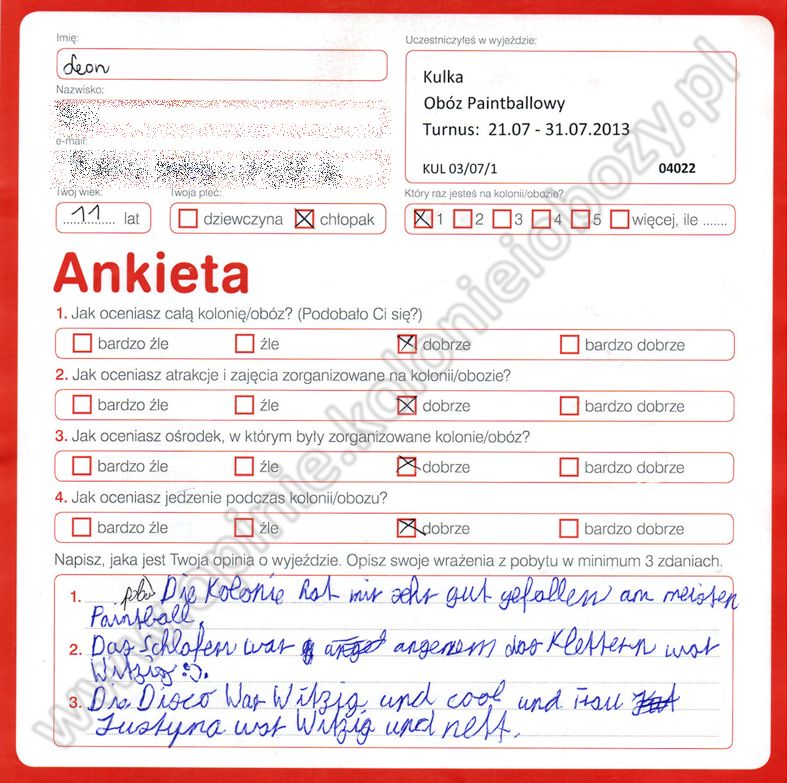 Imię:
Leon
Uczestniczyłeś w wyjeździe:
Kulka
Obóz Paintballowy
Turnus: 21.07 - 31.07.2013
KUL 03/07/1 04022
Nazwisko:
e-mail:
Twój wiek:
11 lat
Twoja płeć:
dziewczyna chłopak
Który raz jesteś na kolonii/obozie?
1 2 3 4 5 więcej, ile .......
Ankieta
1. Jak oceniasz całą kolonię/obóz? (Podobało Ci się?)
bardzo źle źle dobrze bardzo dobrze
2. Jak oceniasz atrakcje i zajęcia zorganizowane na kolonii/obozie?
bardzo źle źle dobrze bardzo dobrze
3. Jak oceniasz ośrodek, w którym były zorganizowane kolonie/obóz?
bardzo źle źle dobrze bardzo dobrze
4. Jak oceniasz jedzenie podczas kolonii/obozu?
bardzo źle źle dobrze bardzo dobrze
Napisz, jaka jest Twoja opinia o wyjeździe. Opisz swoje wrażenia z pobytu w minimum 3 zdaniach.
1. Die Kolonie hat mir sehr gut gefallen am meisten
Paintball.
2. Das Schlafen war angenem das Klettern war
Witzig :).
3. Die Disco War Witzig und cool und Frau
Justyna war Witzig und nett.
www.opinie.kolonieiobozy.pl